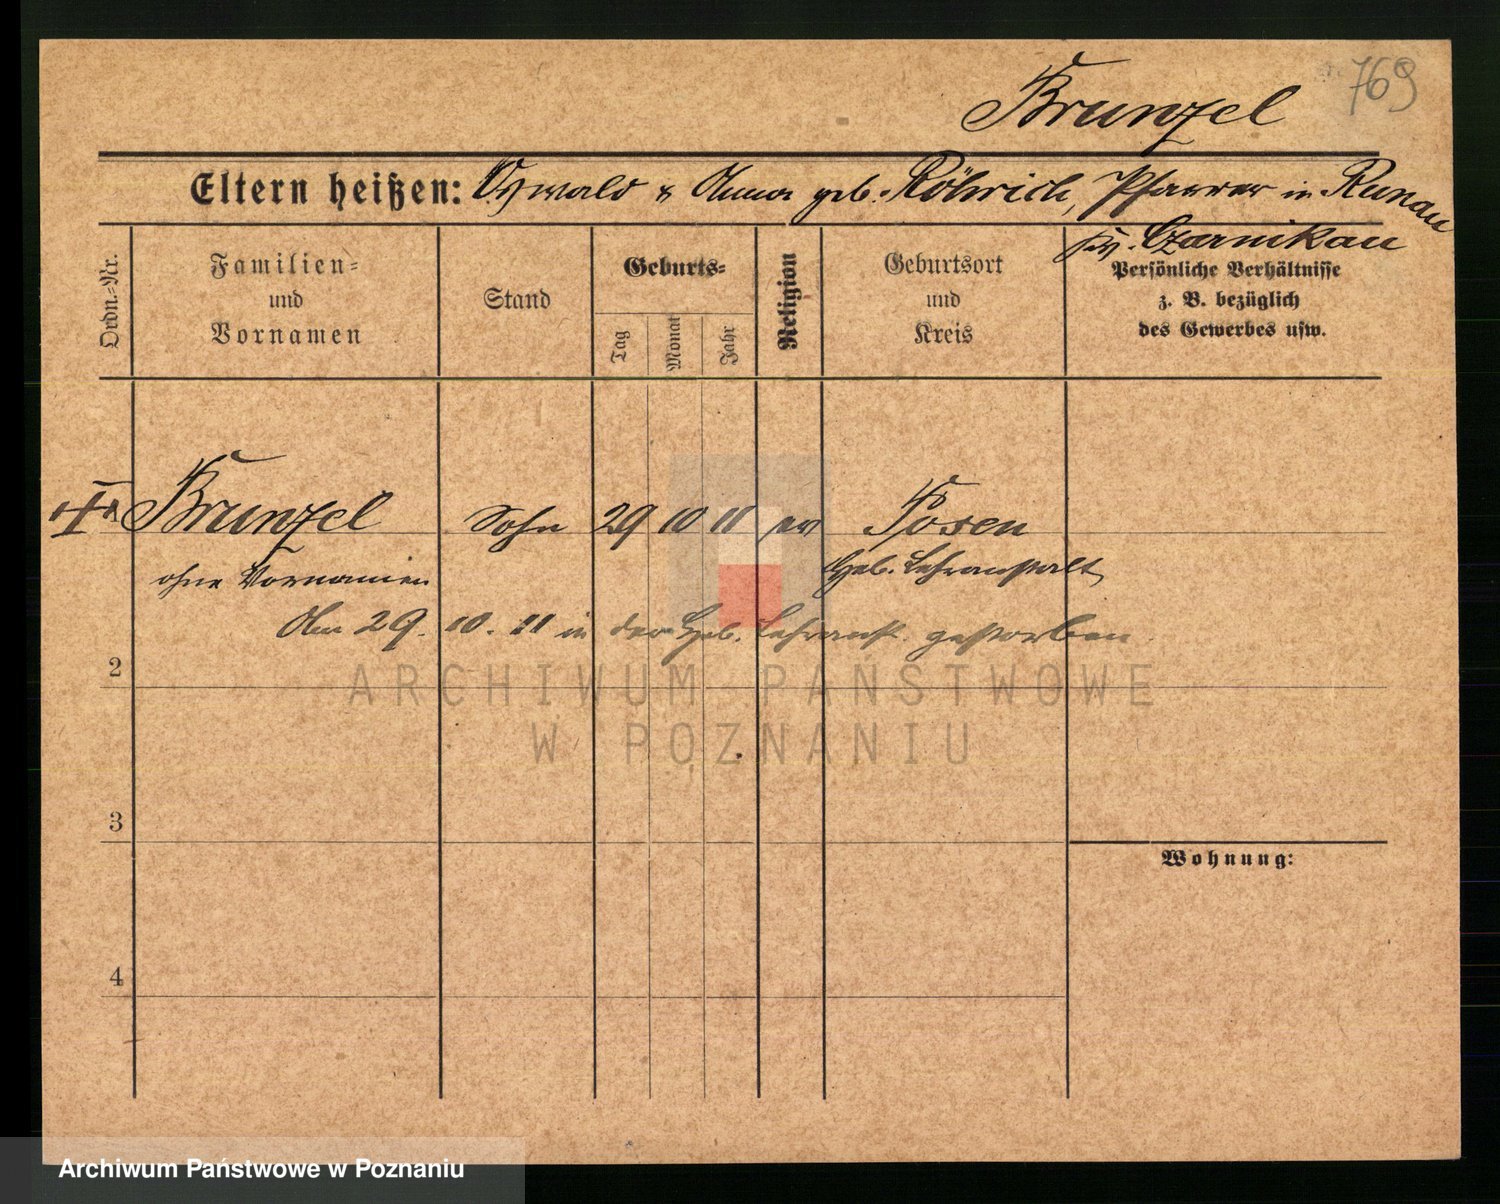 769
Brunzel
Eltern heißen: Oswald & Anna geb. Röhrich, Pfarrer in Runau
Krs. Czarnikau
Ordn.=Nr.
Familien=
und
Vornamen
Stand
Geburts=
Tag
Monat
Jahr
Religion
Geburtsort
und
Kreis
Persönliche Verhältnisse
z. B. bezüglich
des Gewerbes usw.
Brunzel Sohn 29 10 11 ev Posen
ohne Vornamen Heb. Lehranstalt
Am 29. 10. 11 in der Heb. Lehranst. gestorben.
2
ARCHIWUM PAŃSTWOWE
W POZNANIU
3
Wohnung:
4
Archiwum Państwowe w Poznaniu